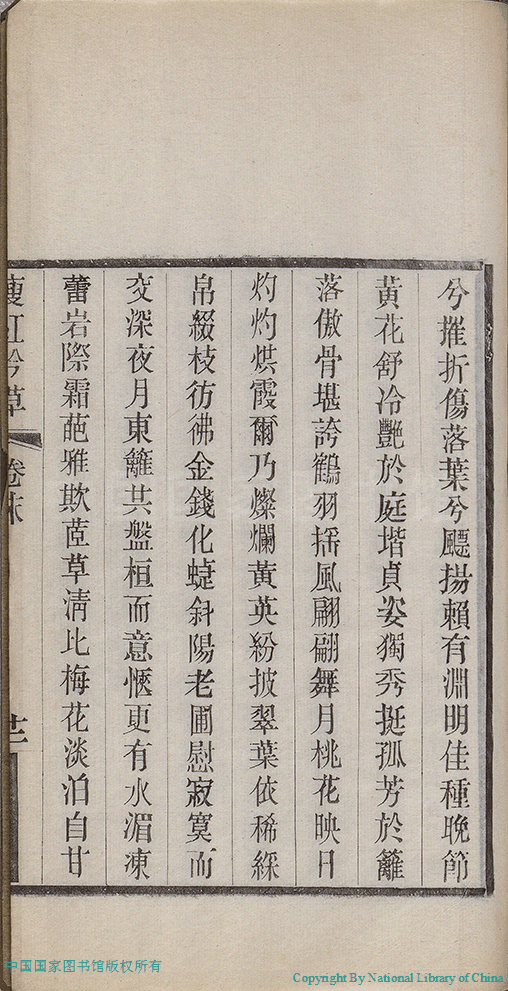 兮摧折傷落葉兮飃揚賴有淵明佳種晚節
黃花舒冷艷於庭堦貞姿獨秀挺孤芳於籬
落傲骨堪誇鶴羽揺風翩翩舞月桃花映日
灼灼烘霞爾乃燦爛黃英紛披翠葉依稀綵
帛綴枝彷彿金錢化蜨斜陽老圃慰寂寞而
交深夜月東籬共盤桓而意愜更有水湄凍
蕾岩際霜葩雅欺莖草淸比梅花淡泊自甘
瘦紅吟草 卷末 廿一
中国国家图书馆版权所有
Copyright By National Library of China